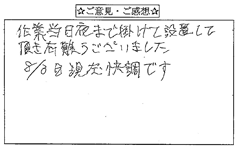 ☆ご意見・ご感想☆
作業当日夜まで掛けて設置して
頂き有難うございました
8/8日現在快調です